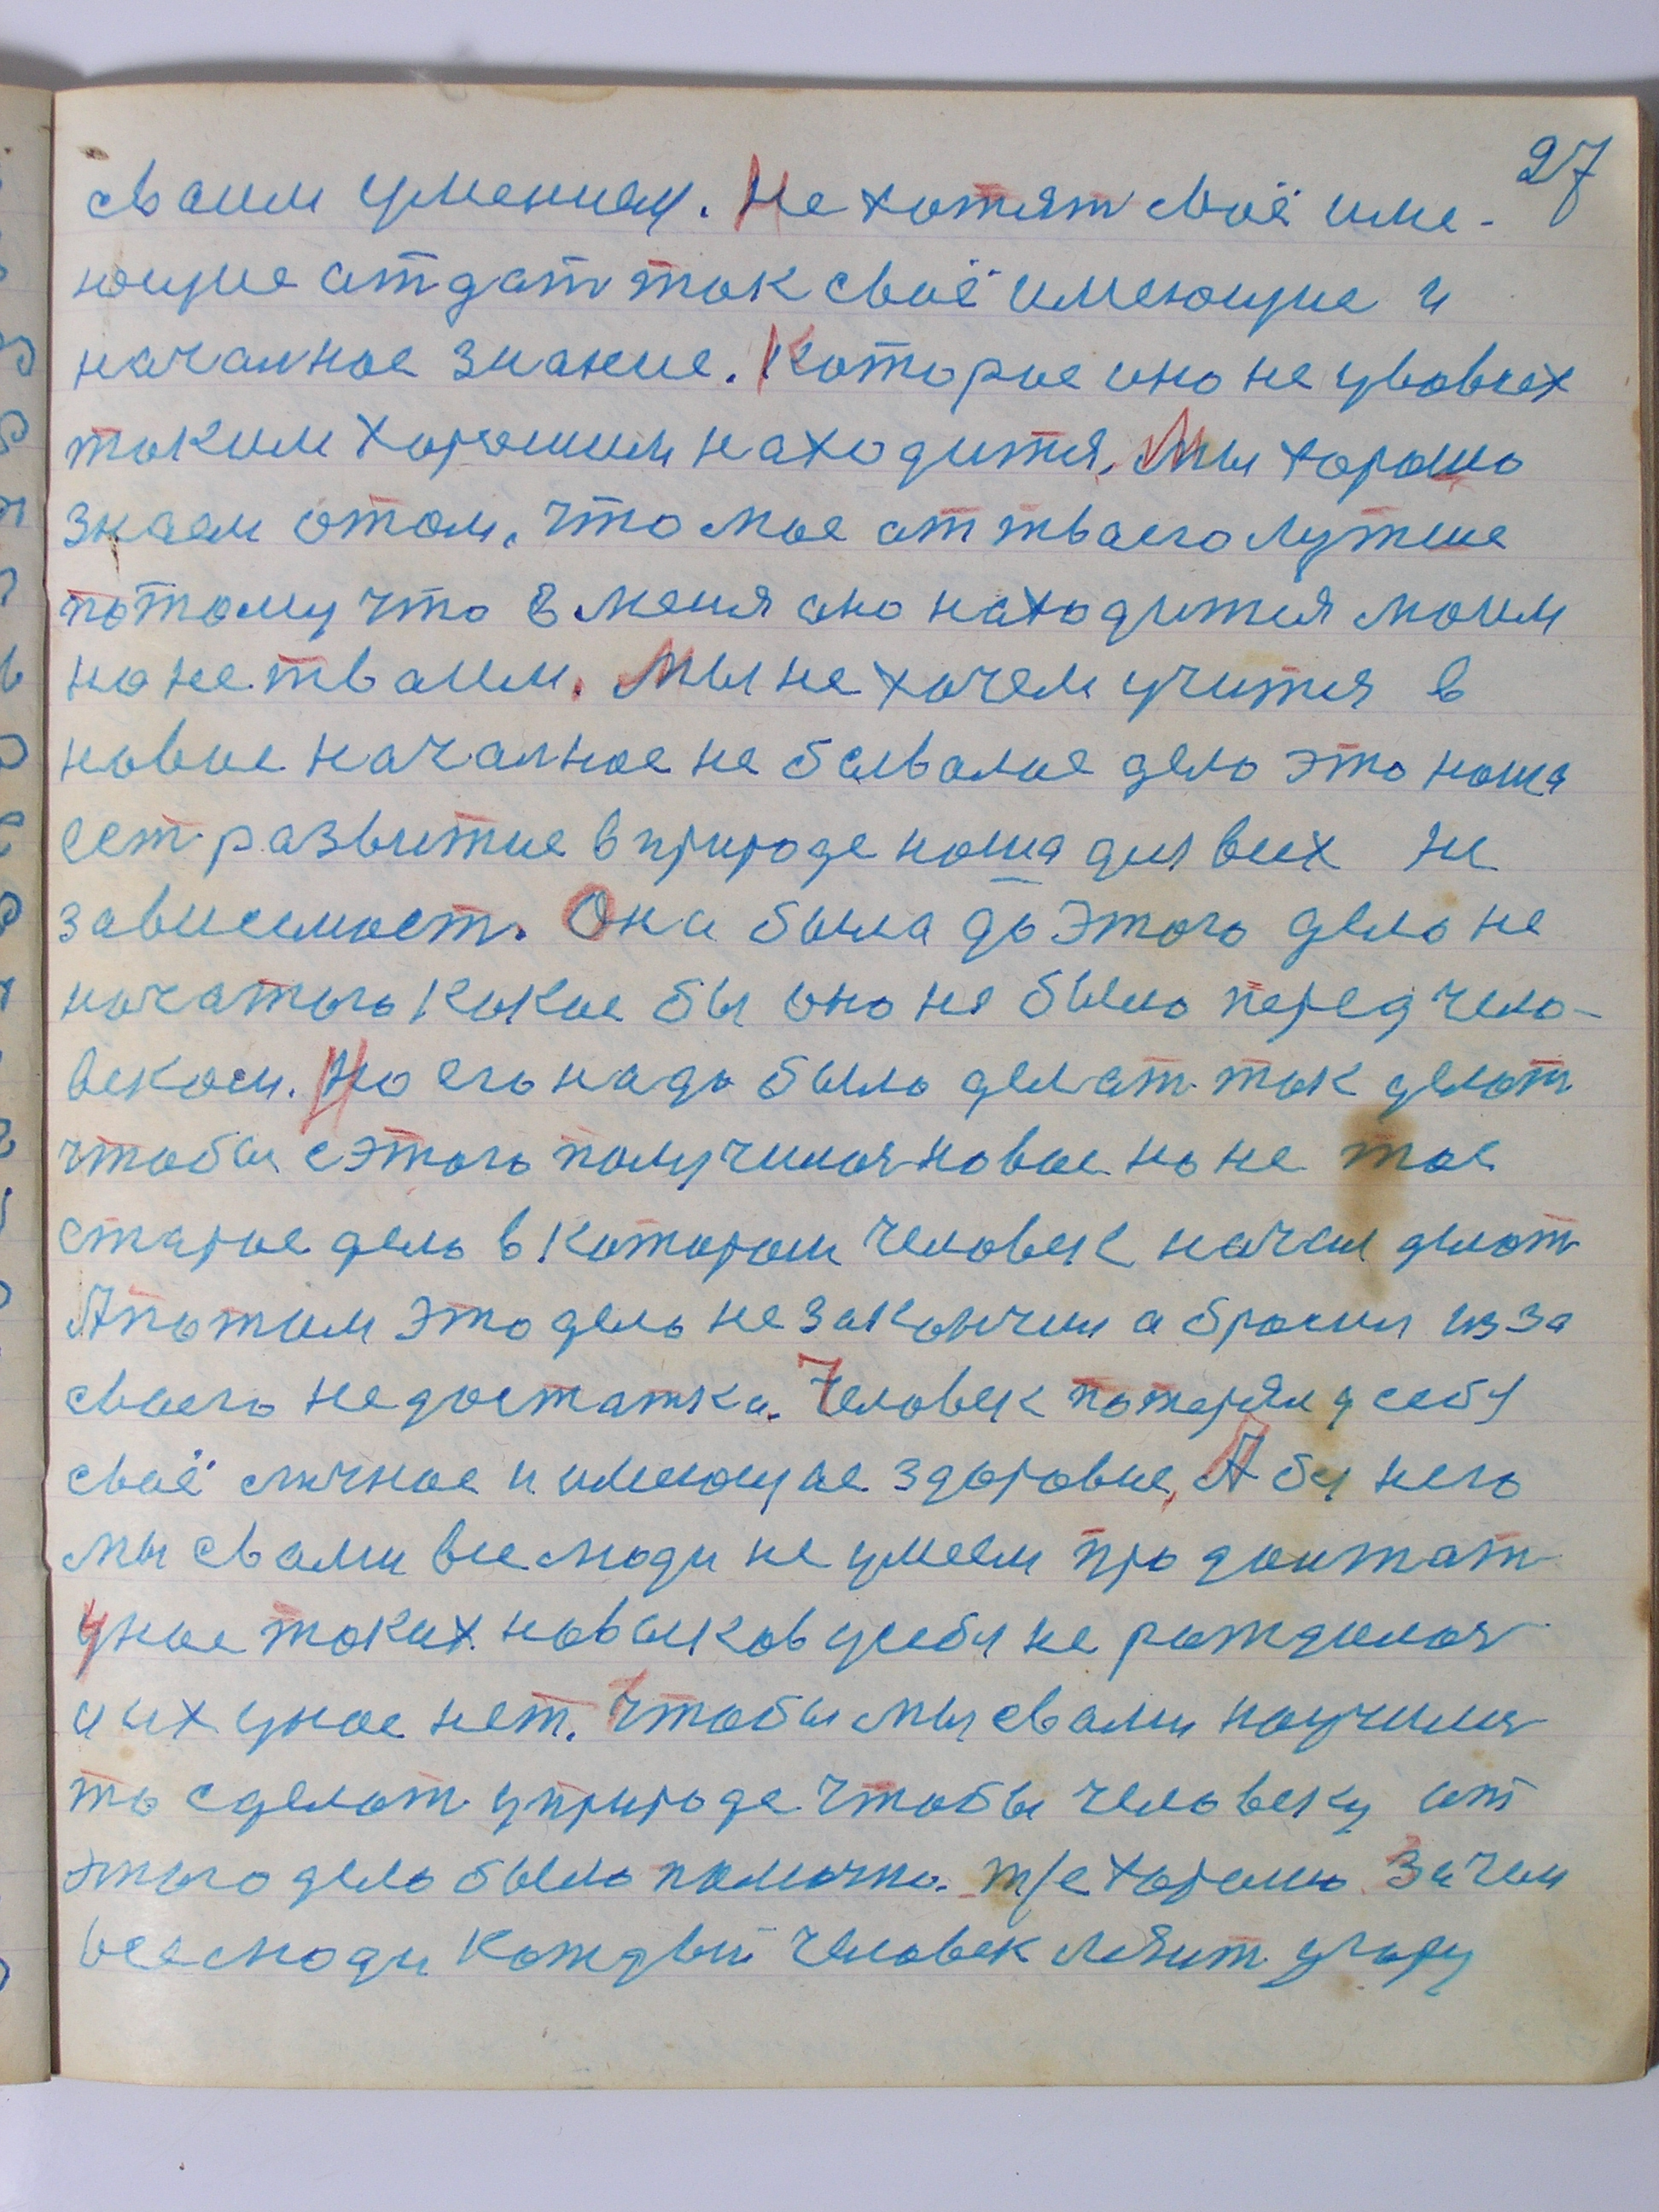 27
сваим умением. Не хотят своё име-
ющие отдат так своё имеющие и
началное знание. Которое оно не увовсех
таким хорошим находится. Мы хорошо
знаем отом, что мое от тваего лутше
потому что в меня оно находится моим
но не тваим. Мы не хочем учится в
новое началное не бывалое дело это наша
ест развитие в природе наша для всех не
зависимост. Она была до этого дела не
начатого какое бы оно не было перед чело-
веком. Но его надо было делат так делат
чтобы с этого получилося новое но не тое
старое дело в котором человек начал делат
А потом это дело не закончил а бросил из за
своего недостатка. Человек потерял у себя
своё личное и имеющие здоровие, А бу него
мы свами все люди не умеем про доктат
унас таких новыков усебя не рождалося
и их унас нет. Чтобы мы свами научился
то сделат у природе чтобы человеку от
этого дела было помочно. т/е хорошо Зачем
все люди каждый человек лезит угору